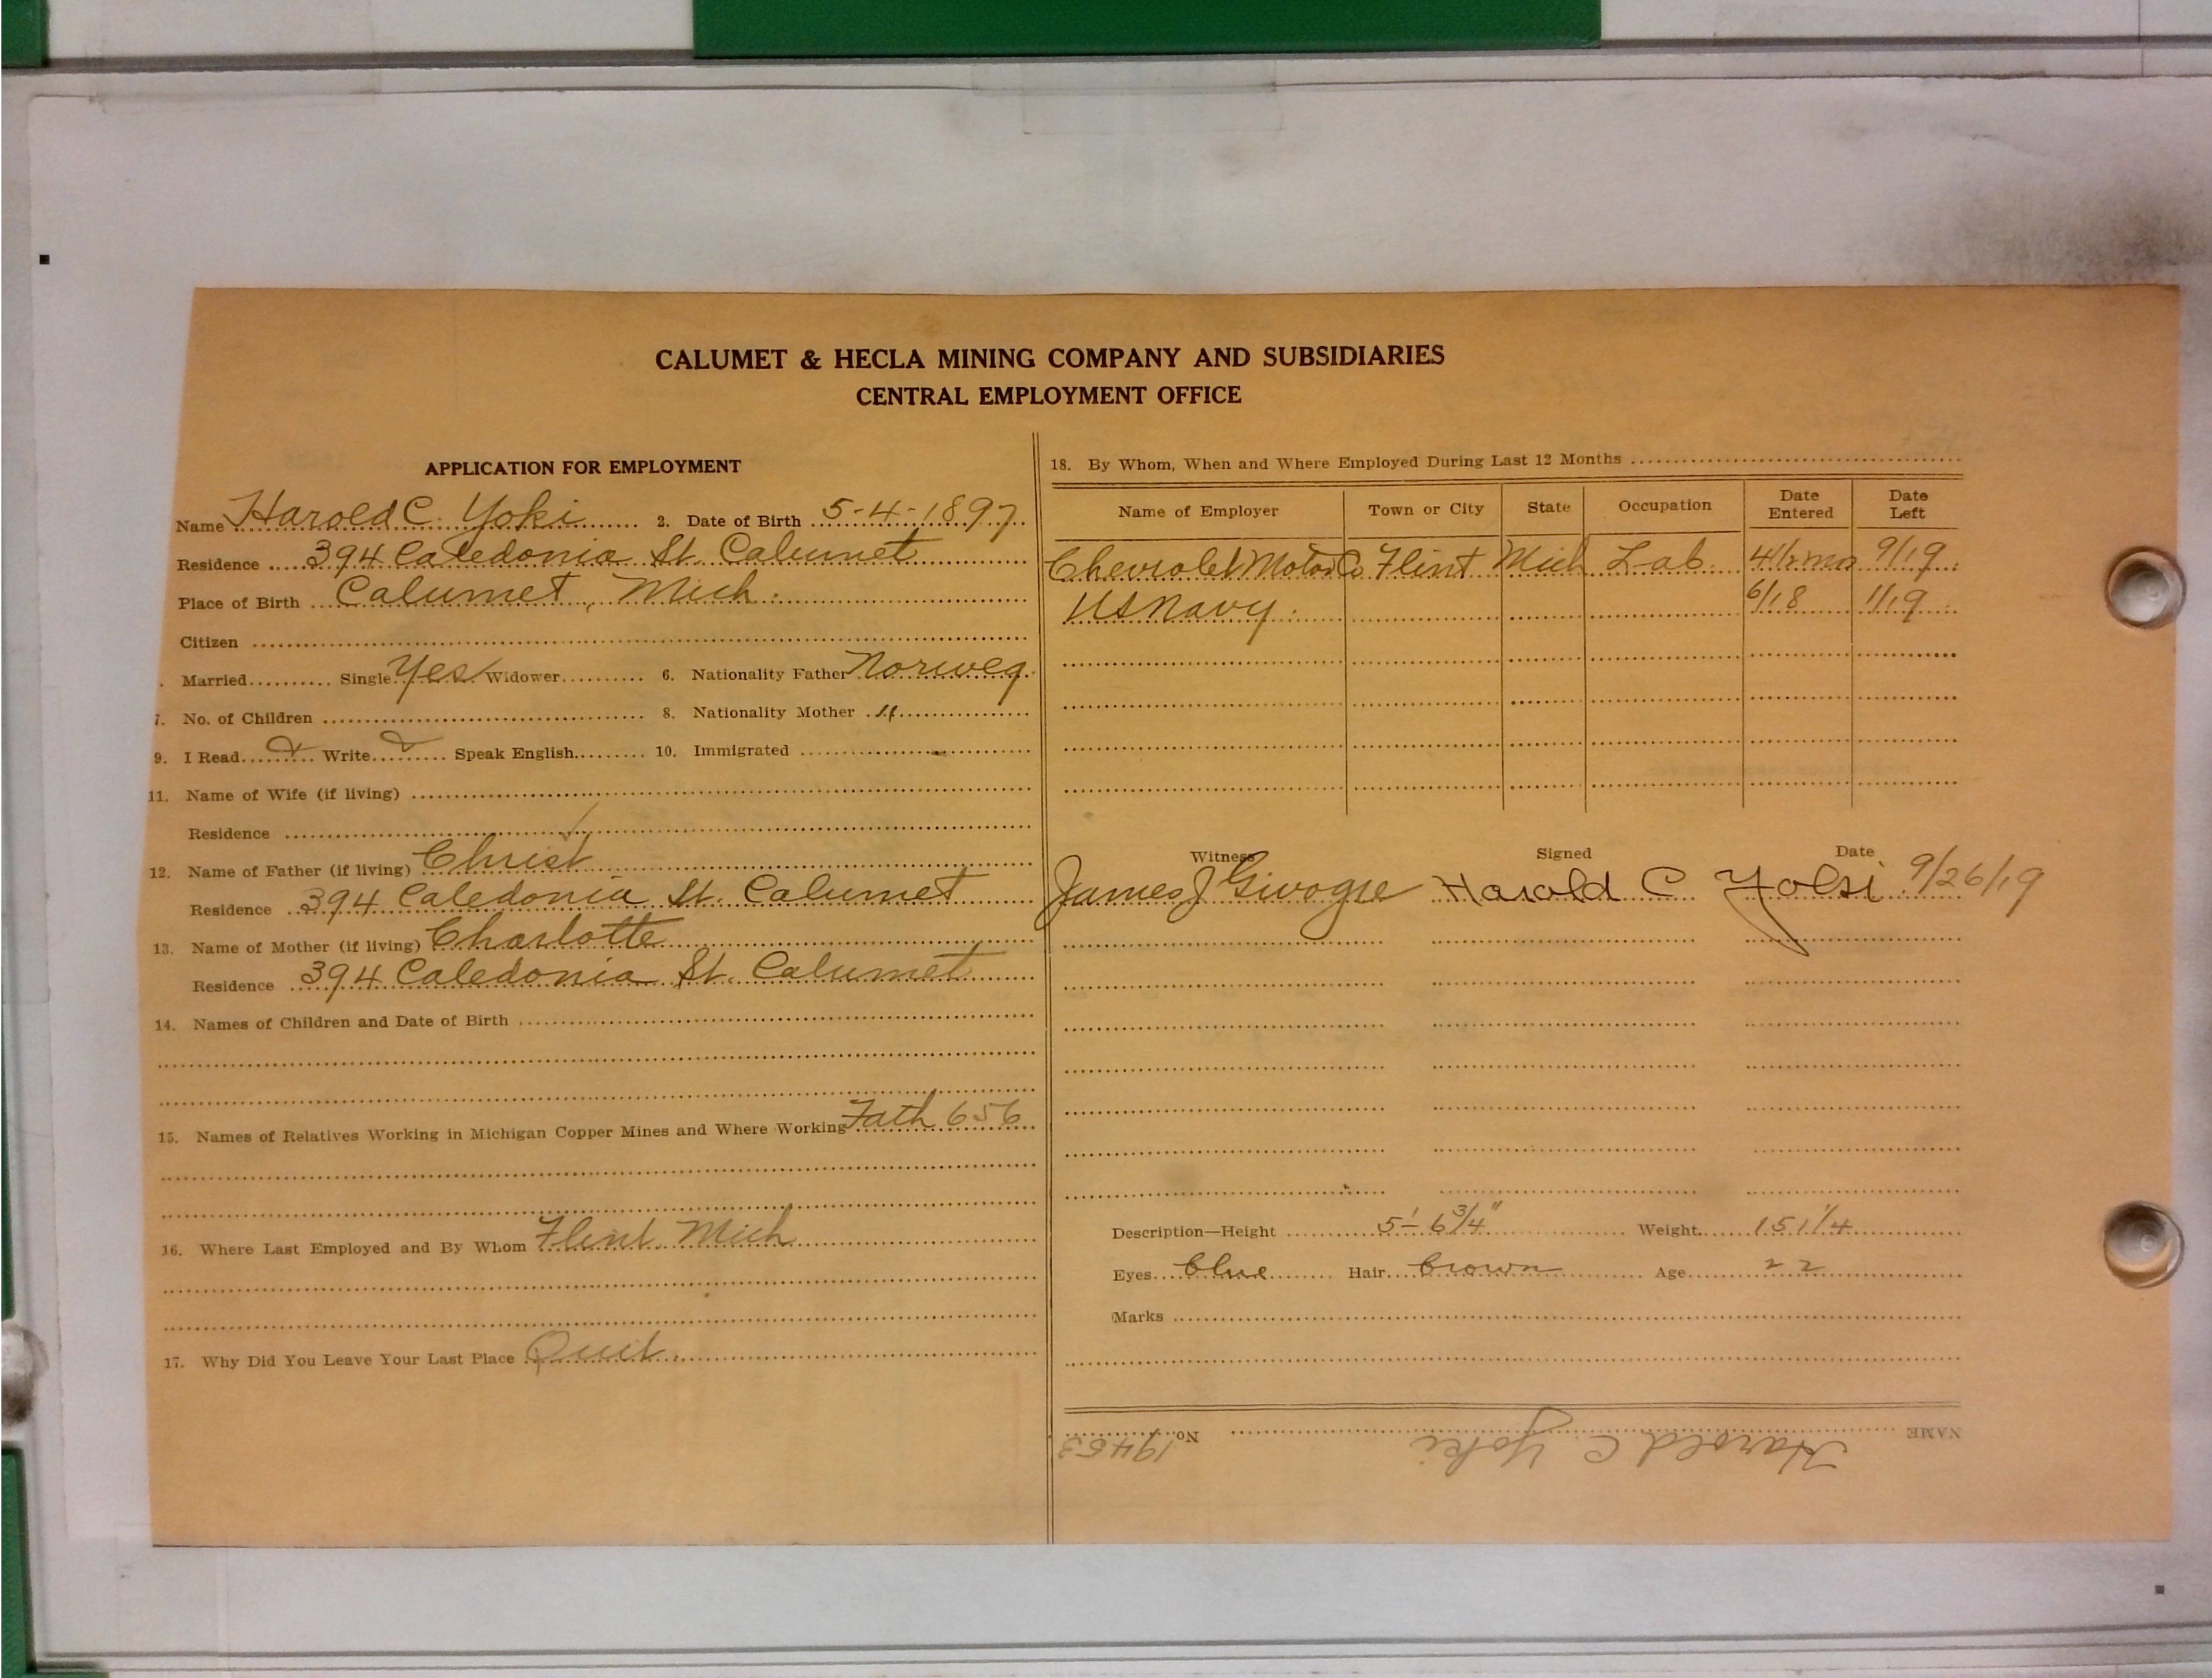 CALUMET & HECLA MINING COMPANY AND SUBSIDIARIES
CENTRAL EMPLOYMENT OFFICE
APPLICATION FOR EMPLOYMENT
Name Harold C. Yoki 2. Date of Birth 5-4-1897
Residence 394 Caledonia St. Calumet
Place of Birth Calumet, Mich.
Citizen
Married Single Yes Widower 6. Nationality Father Norweg.
7. No. of Children 8. Nationality Mother "
9. I Read Write Speak English 10. Immigrated
11. Name of Wife (if living)
Residence
12. Name of Father (if living) Christ
Residence 394 Caledonia St. Calumet
13. Name of Mother (if living) Charlotte
Residence 394 Caledonia St. Calumet
14. Names of Children and Date of Birth
15. Names of Relatives Working in Michigan Copper Mines and Where Working Fath 656
16. Where Last Employed and By Whom Flint, Mich
17. Why Did You Leave Your Last Place Quit.
18. By Whom, When and Where Employed During Last 12 Months
Name of Employer Town or City State Occupation Date Entered Date Left
Chevrolet Motor Co Flint Mich Lab. 4 1/2 mo 9/19
US Navy. 6/18 1/19
Witness Signed Date
James J Harold C Yoki 9/26/19
Description—Height 5'-6 3/4" Weight 151 1/4
Eyes blue Hair brown Age 22
Marks
NAME Harold C Yoki No. 19453